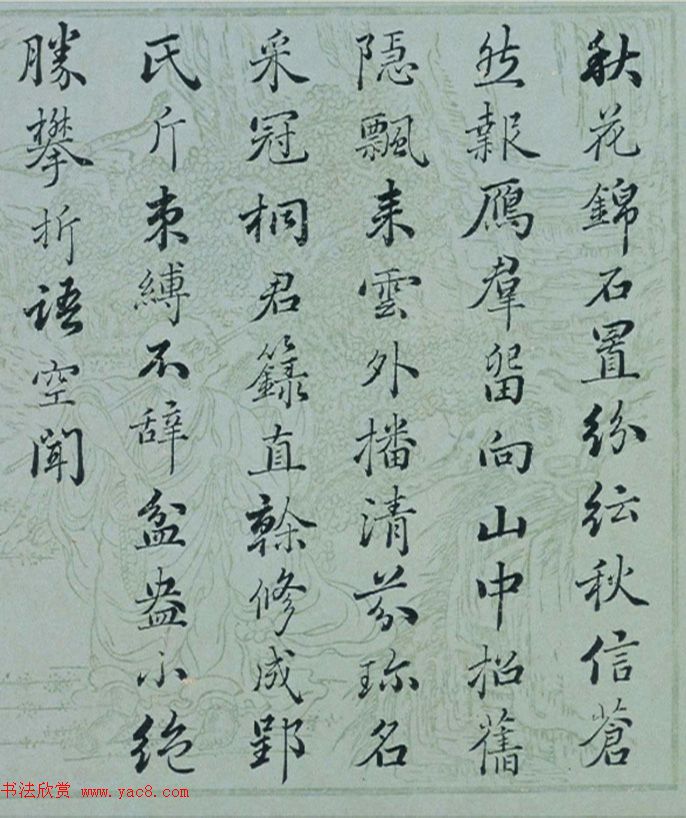 秋花錦石置紛紜秋信蒼
然報鴈羣留向山中招舊
隱飄来雲外播清芬珎名
采冠桐君籙直幹修成郢
氏斤束縛不辭盆盎小絶
勝攀折語空聞
书法欣赏 www.yac8.com